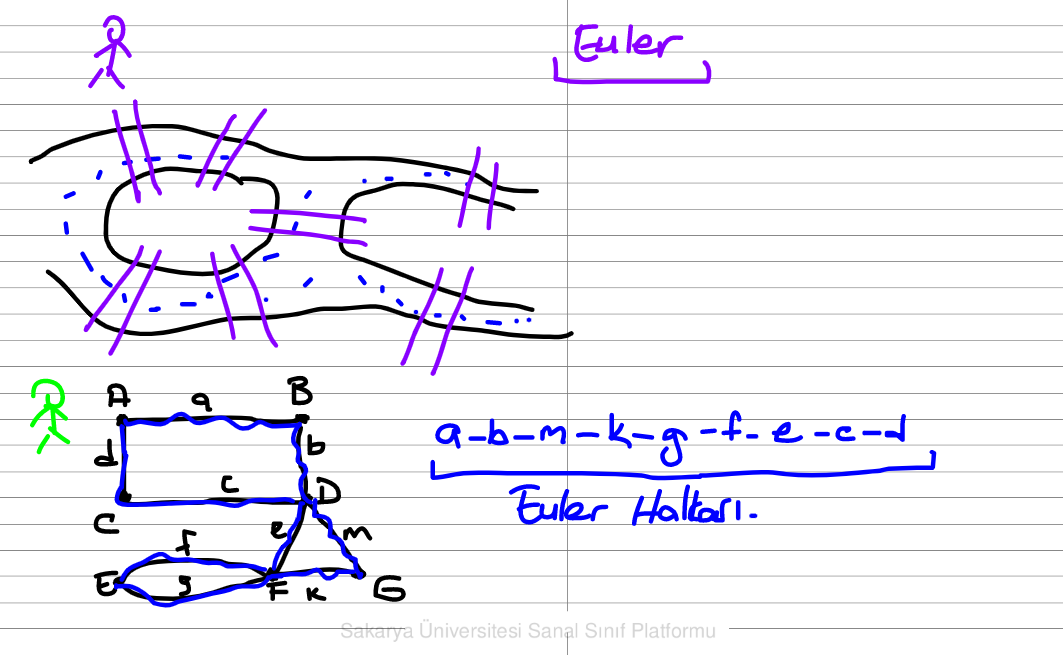 Euler
A a B
d b
c D
C e m
f
E g F k G
a-b-m-k-g-f-e-c-d
Euler Halkası.
Sakarya Üniversitesi Sanal Sınıf Platformu